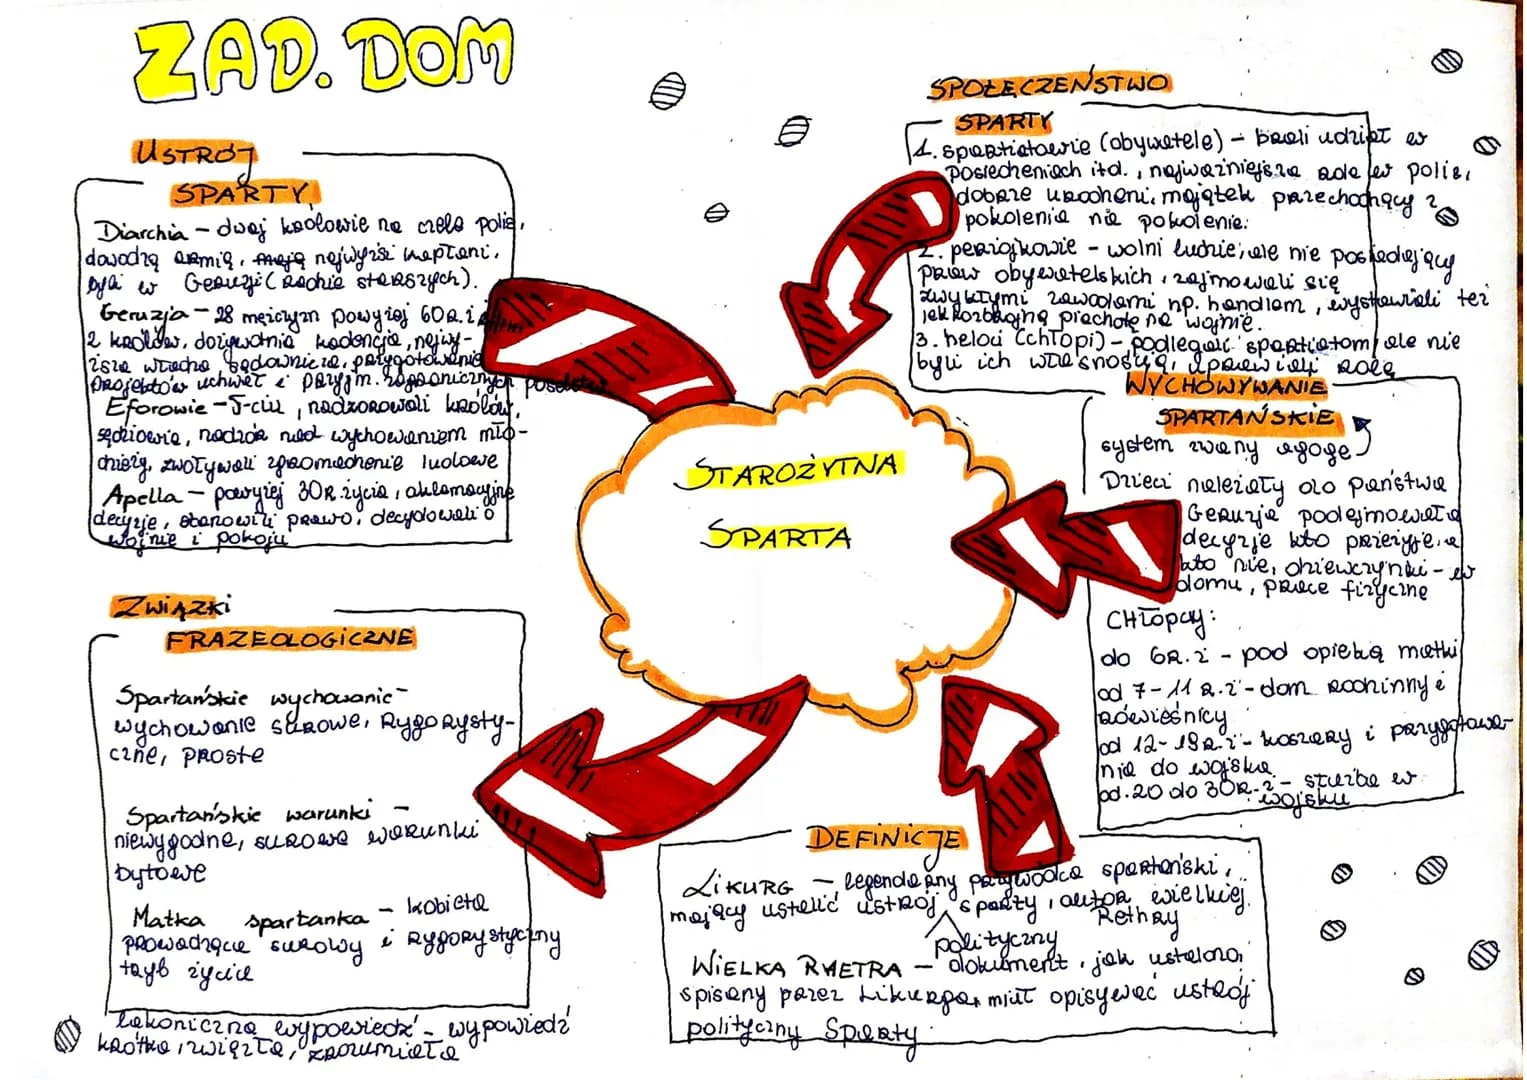 ZAD. DOM
USTRÓJ
SPARTY
Diarchia – dwaj królowie na czele polis,
dowodzą armią, mają najwyżsi kapłani,
byli w Geruzji (radzie starszych).
Geruzja – 28 mężczyzn powyżej 60 r.ż i
2 królów, dożywotnia kadencja, najwyż-
ższa władza sądownicza, przygotowanie
projektów uchwał i przyjm. zagranicznych poselstw
Eforowie – 5-ciu, nadzorowali królów,
sędziowie, nadzór nad wychowaniem mło-
dzieży, zwoływali zgromadzenie ludowe
Apella – powyżej 30 r. życia, aklamacyjne
decyzje, stanowili prawo, decydowali o
wojnie i pokoju
ZWIĄZKI
FRAZEOLOGICZNE
Spartańskie wychowanie –
wychowanie surowe, rygorysty-
czne, proste
Spartańskie warunki –
niewygodne, surowe warunki
bytowe
Matka spartanka – kobieta
prowadząca surowy i rygorystyczny
tryb życia
Lakoniczna wypowiedź – wypowiedź
krótka, zwięzła, zrozumiała
STAROŻYTNA
SPARTA
SPOŁECZEŃSTWO
SPARTY
1. spartiatowie (obywatele) – brali udział w
posiedzeniach itd., najważniejsza rola w polis,
dobrze urodzeni, majątek przechodzący z
pokolenia na pokolenie.
2. periojkowie – wolni ludzie, ale nie posiadający
praw obywatelskich, zajmowali się
zwykłymi zawodami np. handlem, wystawiali też
lekkozbrojną piechotę na wojnie.
3. heloci (chłopi) – podlegali spartiatom, ale nie
byli ich własnością, uprawiali rolę
WYCHOWYWANIE
SPARTAŃSKIE
system zwany agoge
Dzieci należały do państwa
Geruzja podejmowała
decyzje kto przeżyje, a
kto nie, dziewczynki – w
domu, prace fizyczne
Chłopcy:
do 6 r.ż – pod opieką matki
od 7-11 r.ż – dom rodzinny i
rówieśnicy
od 12-19 r.ż – koszary i przygotowa-
nia do wojska
od 20 do 30 r.ż – służba w
wojsku
DEFINICJE
LIKURG – legendarny przywódca spartański,
mający ustalić ustrój polityczny Sparty, autor wielkiej
Rethry
WIELKA RHETRA – dokument, jak ustalono,
spisany przez Likurga, miał opisywać ustrój
polityczny Sparty.